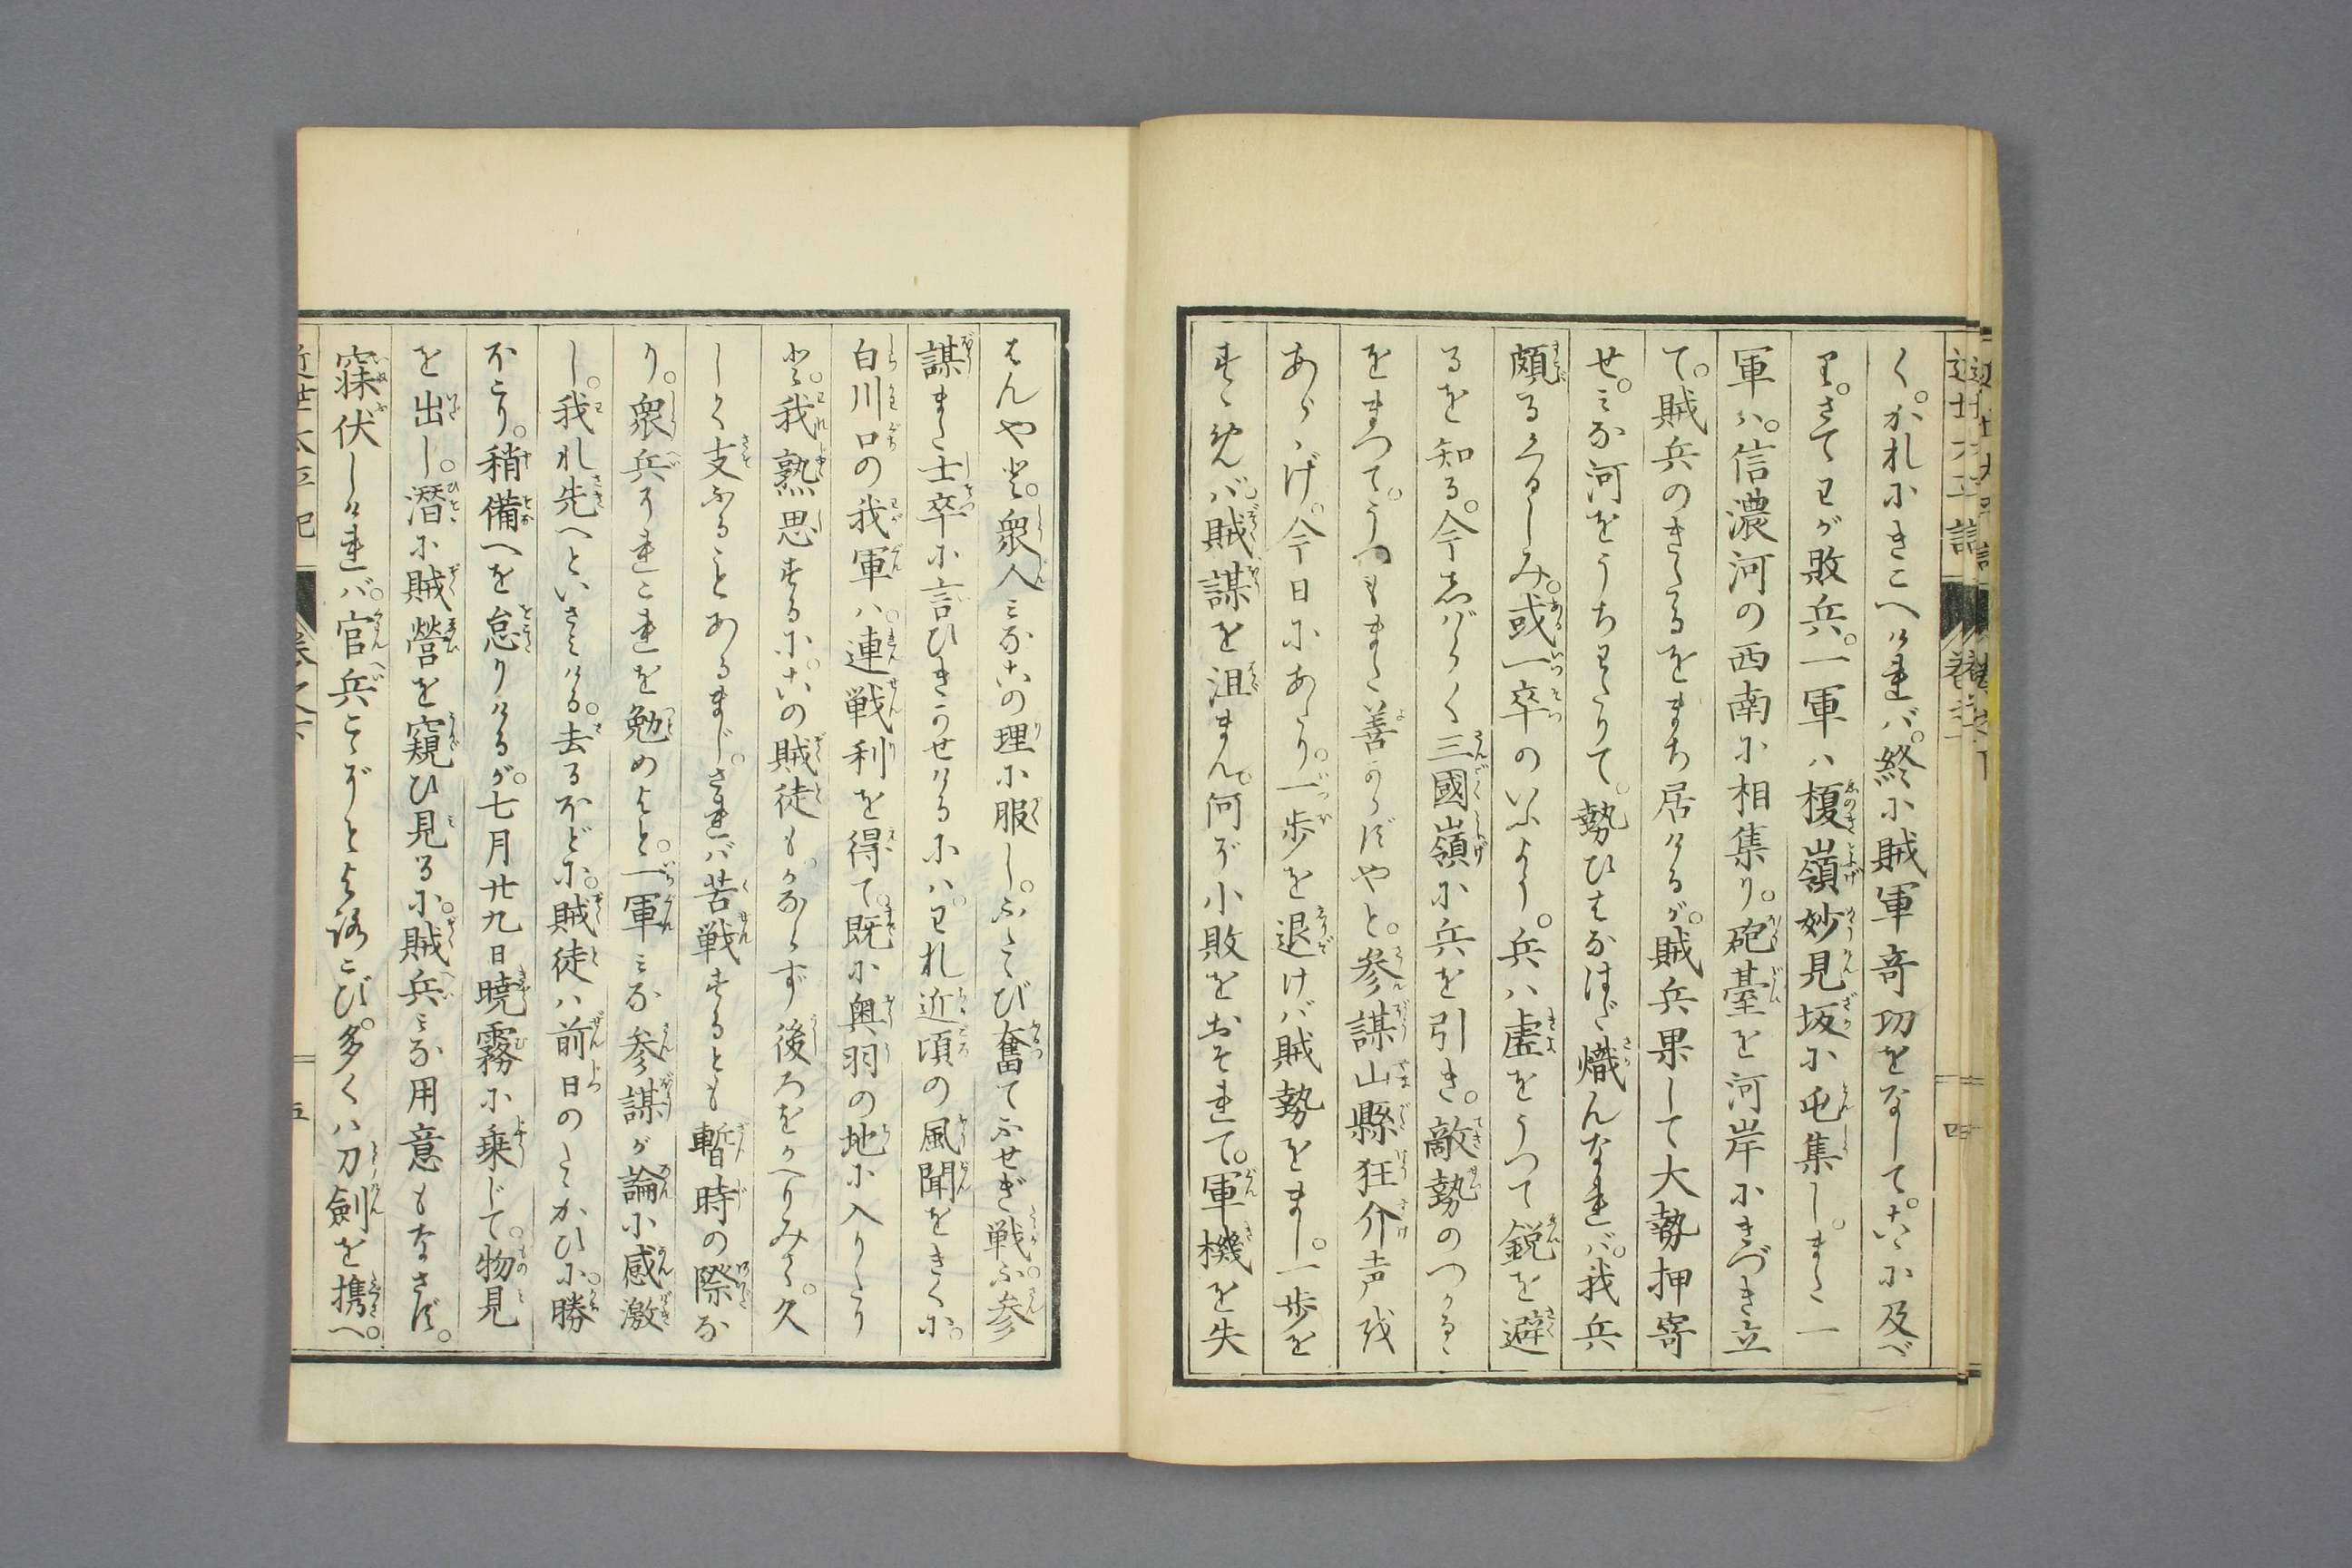 く。かれにきこへければ。終に賊軍奇功をなして。こゝに及べ
り。さてわが敗兵。一軍ハ榎嶺妙見坂に屯集し。また一
軍ハ。信濃河の西南に相集り。砲臺を河岸にきづき立
て。賊兵のきたるをまち居けるが。賊兵果して大勢押寄
せ。みな河をうちわたりて。勢ひはなはだ熾んなれバ。我兵
頗るくるしみ。或一卒のいふよう。兵ハ虚をうつて鋭を避
るを知る。今しばらく三國嶺に兵を引き。敵勢のつかるゝ
をまつて。うつもまた善からずやと。参謀山縣狂介声我
あらゝげ。今日にあたり。一歩を退けば賊勢をまし。一歩を
すゝめバ。賊謀を沮まん。何ぞ小敗をおそれて。軍機を失
はんやと。衆人みなこの理に服し。ふたゝび奮てふせぎ戦ふ。参
謀また士卒に言ひきかせけるにハ。われ近頃の風聞をきくに。
白川口の我軍ハ。連戦利を得て。既に奥羽の地に入りたり
と。我熟思するに。この賊徒もかならず後ろをかへりみて。久
しく支ふることあるまじ。されバ苦戦するとも暫時の際な
り。衆兵それこれを勉めよと。一軍みな参謀が論に感激
し。我れ先へといさみける。去るほどに。賊徒ハ前日のたゝかひに。勝
ほこり。稍備へを怠りけるが。七月廿九日暁霧に乗じて。物見
を出し。潜に賊營を窺ひ見るに。賊兵みな用意もなさず。
寐伏しければ。官兵こぞとよろこび。多くハ刀劍を携へ。
近世太平記
巻之下
五
四